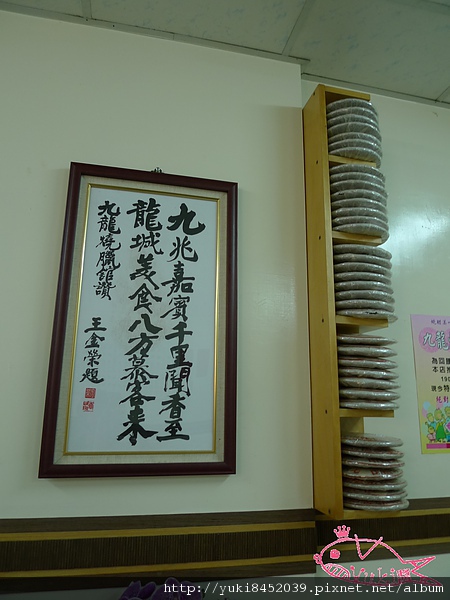 九兆嘉賓千里聞香至
龍城美食八方慕客来
九龍燒臘館讚
王金榮題
九龍
為回饋
本店
190
特
http://yuki8452039.pixnet.net/album